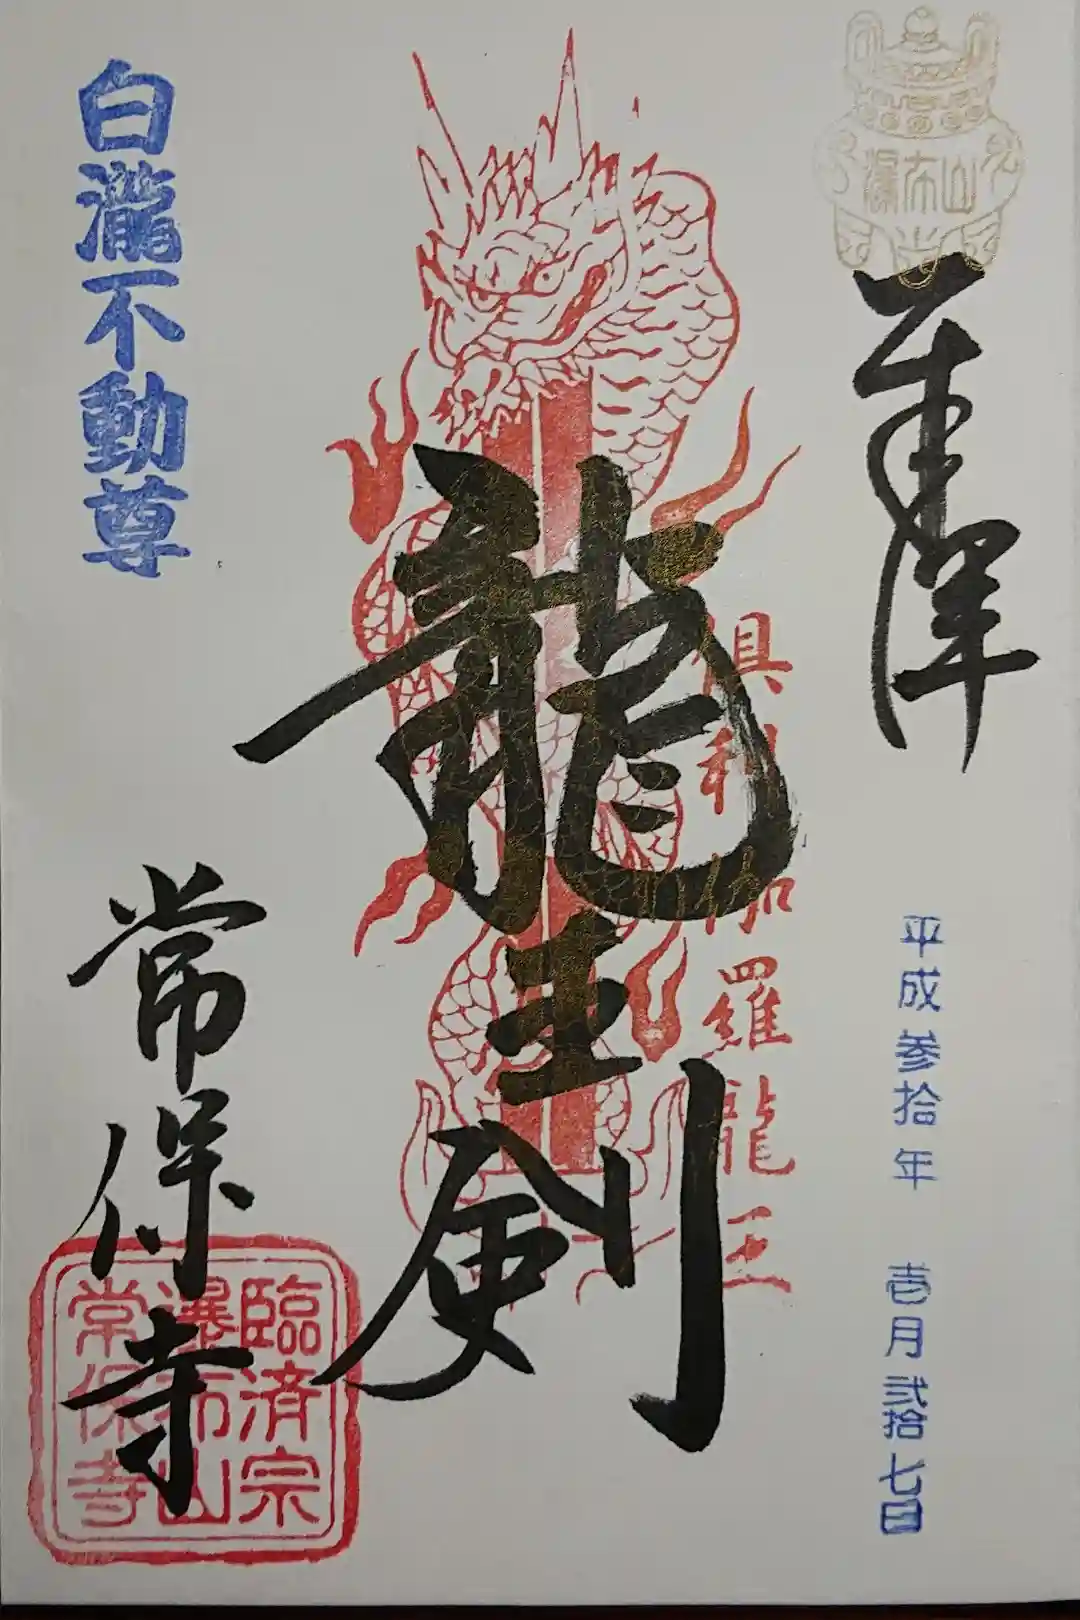 瀑布山
奉拝
平成参拾年 壱月弐拾七日
倶利伽羅龍王
龍王剣
白瀧不動尊
常保寺
臨済宗
瀑布山
常保寺